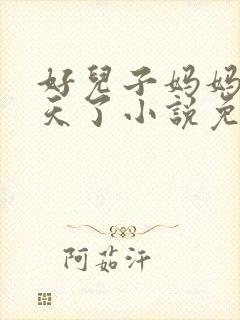 好兒子妈妈
天了小説免
阿茹汗